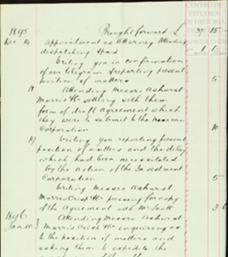 1895 Brought forward £ 37 15
Dec 14 Appointment as Attorney Attending
dispatching 1 1
Writing you in confirmation
of our telegram & reporting present
position of matters 5
17 Attending Messrs Ashurst
Morris & Co settling with them
form of draft Agreement which
they were to submit to the
Corporation 10
19 Writing you reporting present
position of matters and the delay
which had been necessitated
by the action of the Investment
Corporation 5
Writing Messrs Ashurst
Morris Crisp & Co pressing for copy
of the Agreement with Mr Scott 3
1896
Jany Attending Messrs Ashurst
Morris Crisp & Co enquiring as
to the position of matters and
asking them to expedite the